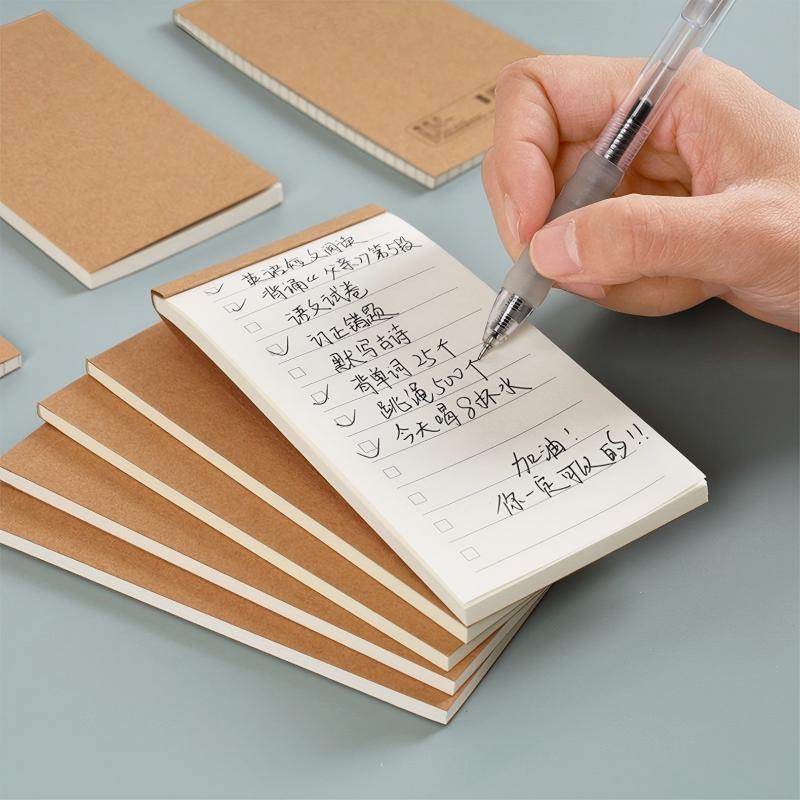 英语短文阅读
背诵《父亲》第5段
语文试卷
订正错题
默写古诗
背单词25个
跳绳500个
今天喝8杯水
加油!
你一定可以的!!